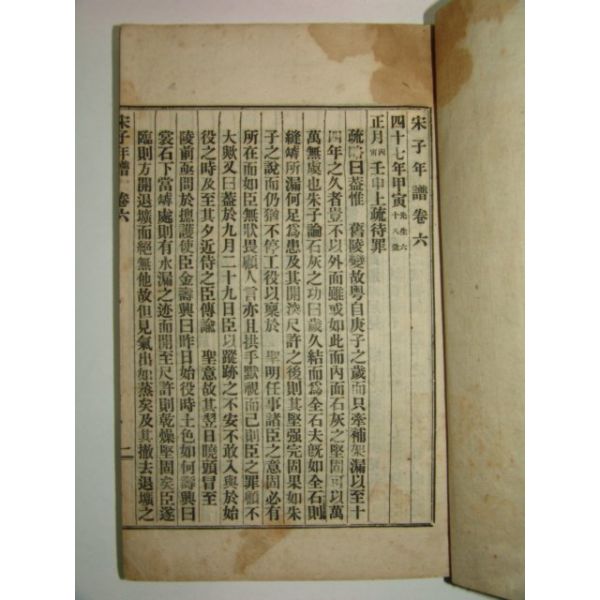 宋子年譜卷六
四十七年甲寅 先生六十八歲
正月丙寅壬申上疏待罪
疏略曰蓋惟 舊陵變故粤自庚子之歲而只牽補架漏以至十
四年之久者豈不以外面雖或如此而內面石灰之堅固可以萬
萬無虞也朱子論石灰之功曰歲久結而爲全石夫旣如全石則
縫罅所漏何足爲患及其開淺尺許之後則其堅强完固果如朱
子之說而仍猶不停工役以稟於 聖明任事諸臣之意固必有
所在而如臣無狀畏顧人言亦且拱手默視而已則臣之罪顧不
大歟又曰蓋於九月二十九日臣以蹤跡之不安不敢入與於始
役之時及至其夕近侍之臣傳諭 聖意故其翌日曉頭冒至
陵前亟問於摠護使臣金壽興曰昨日始役時土色如何壽興曰
裳石下當罅處則有水漏之迹而開至尺許則乾燥堅固矣臣遂
臨則方開退壙而絕無他故但見氣出如蒸矣及其撤去退壙之
宋子年譜 卷六 一